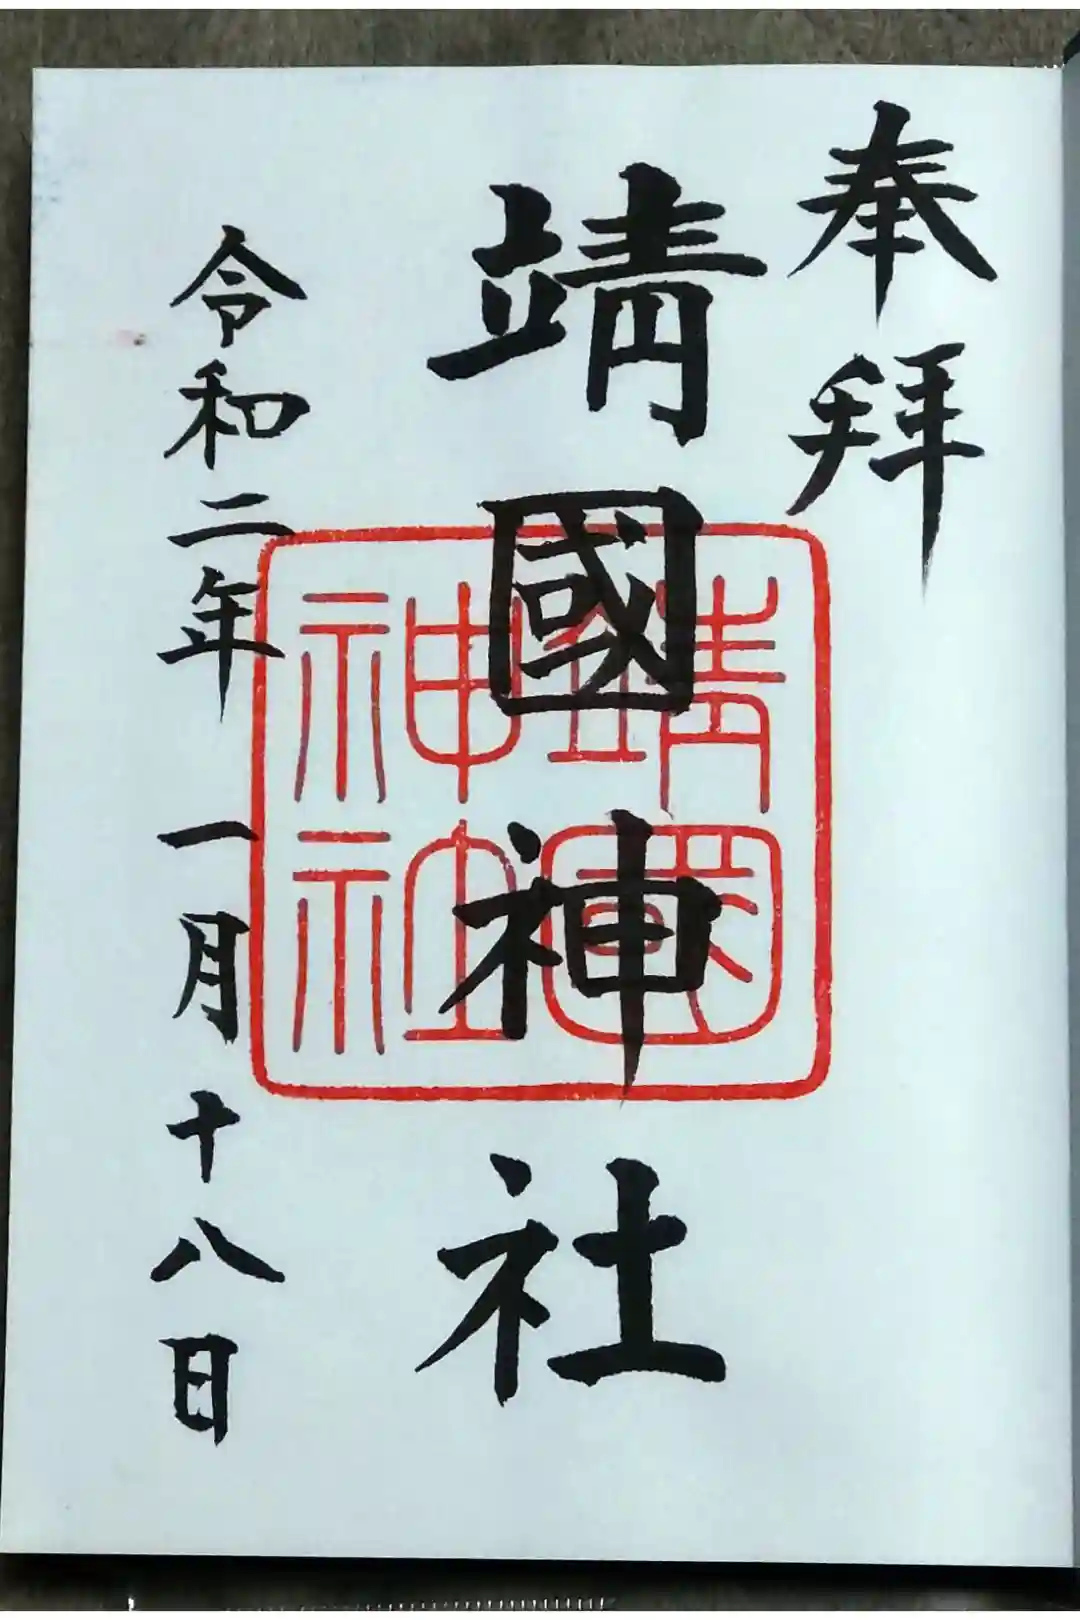 奉拜
靖國神社
靖國
神社
令和二年一月十八日